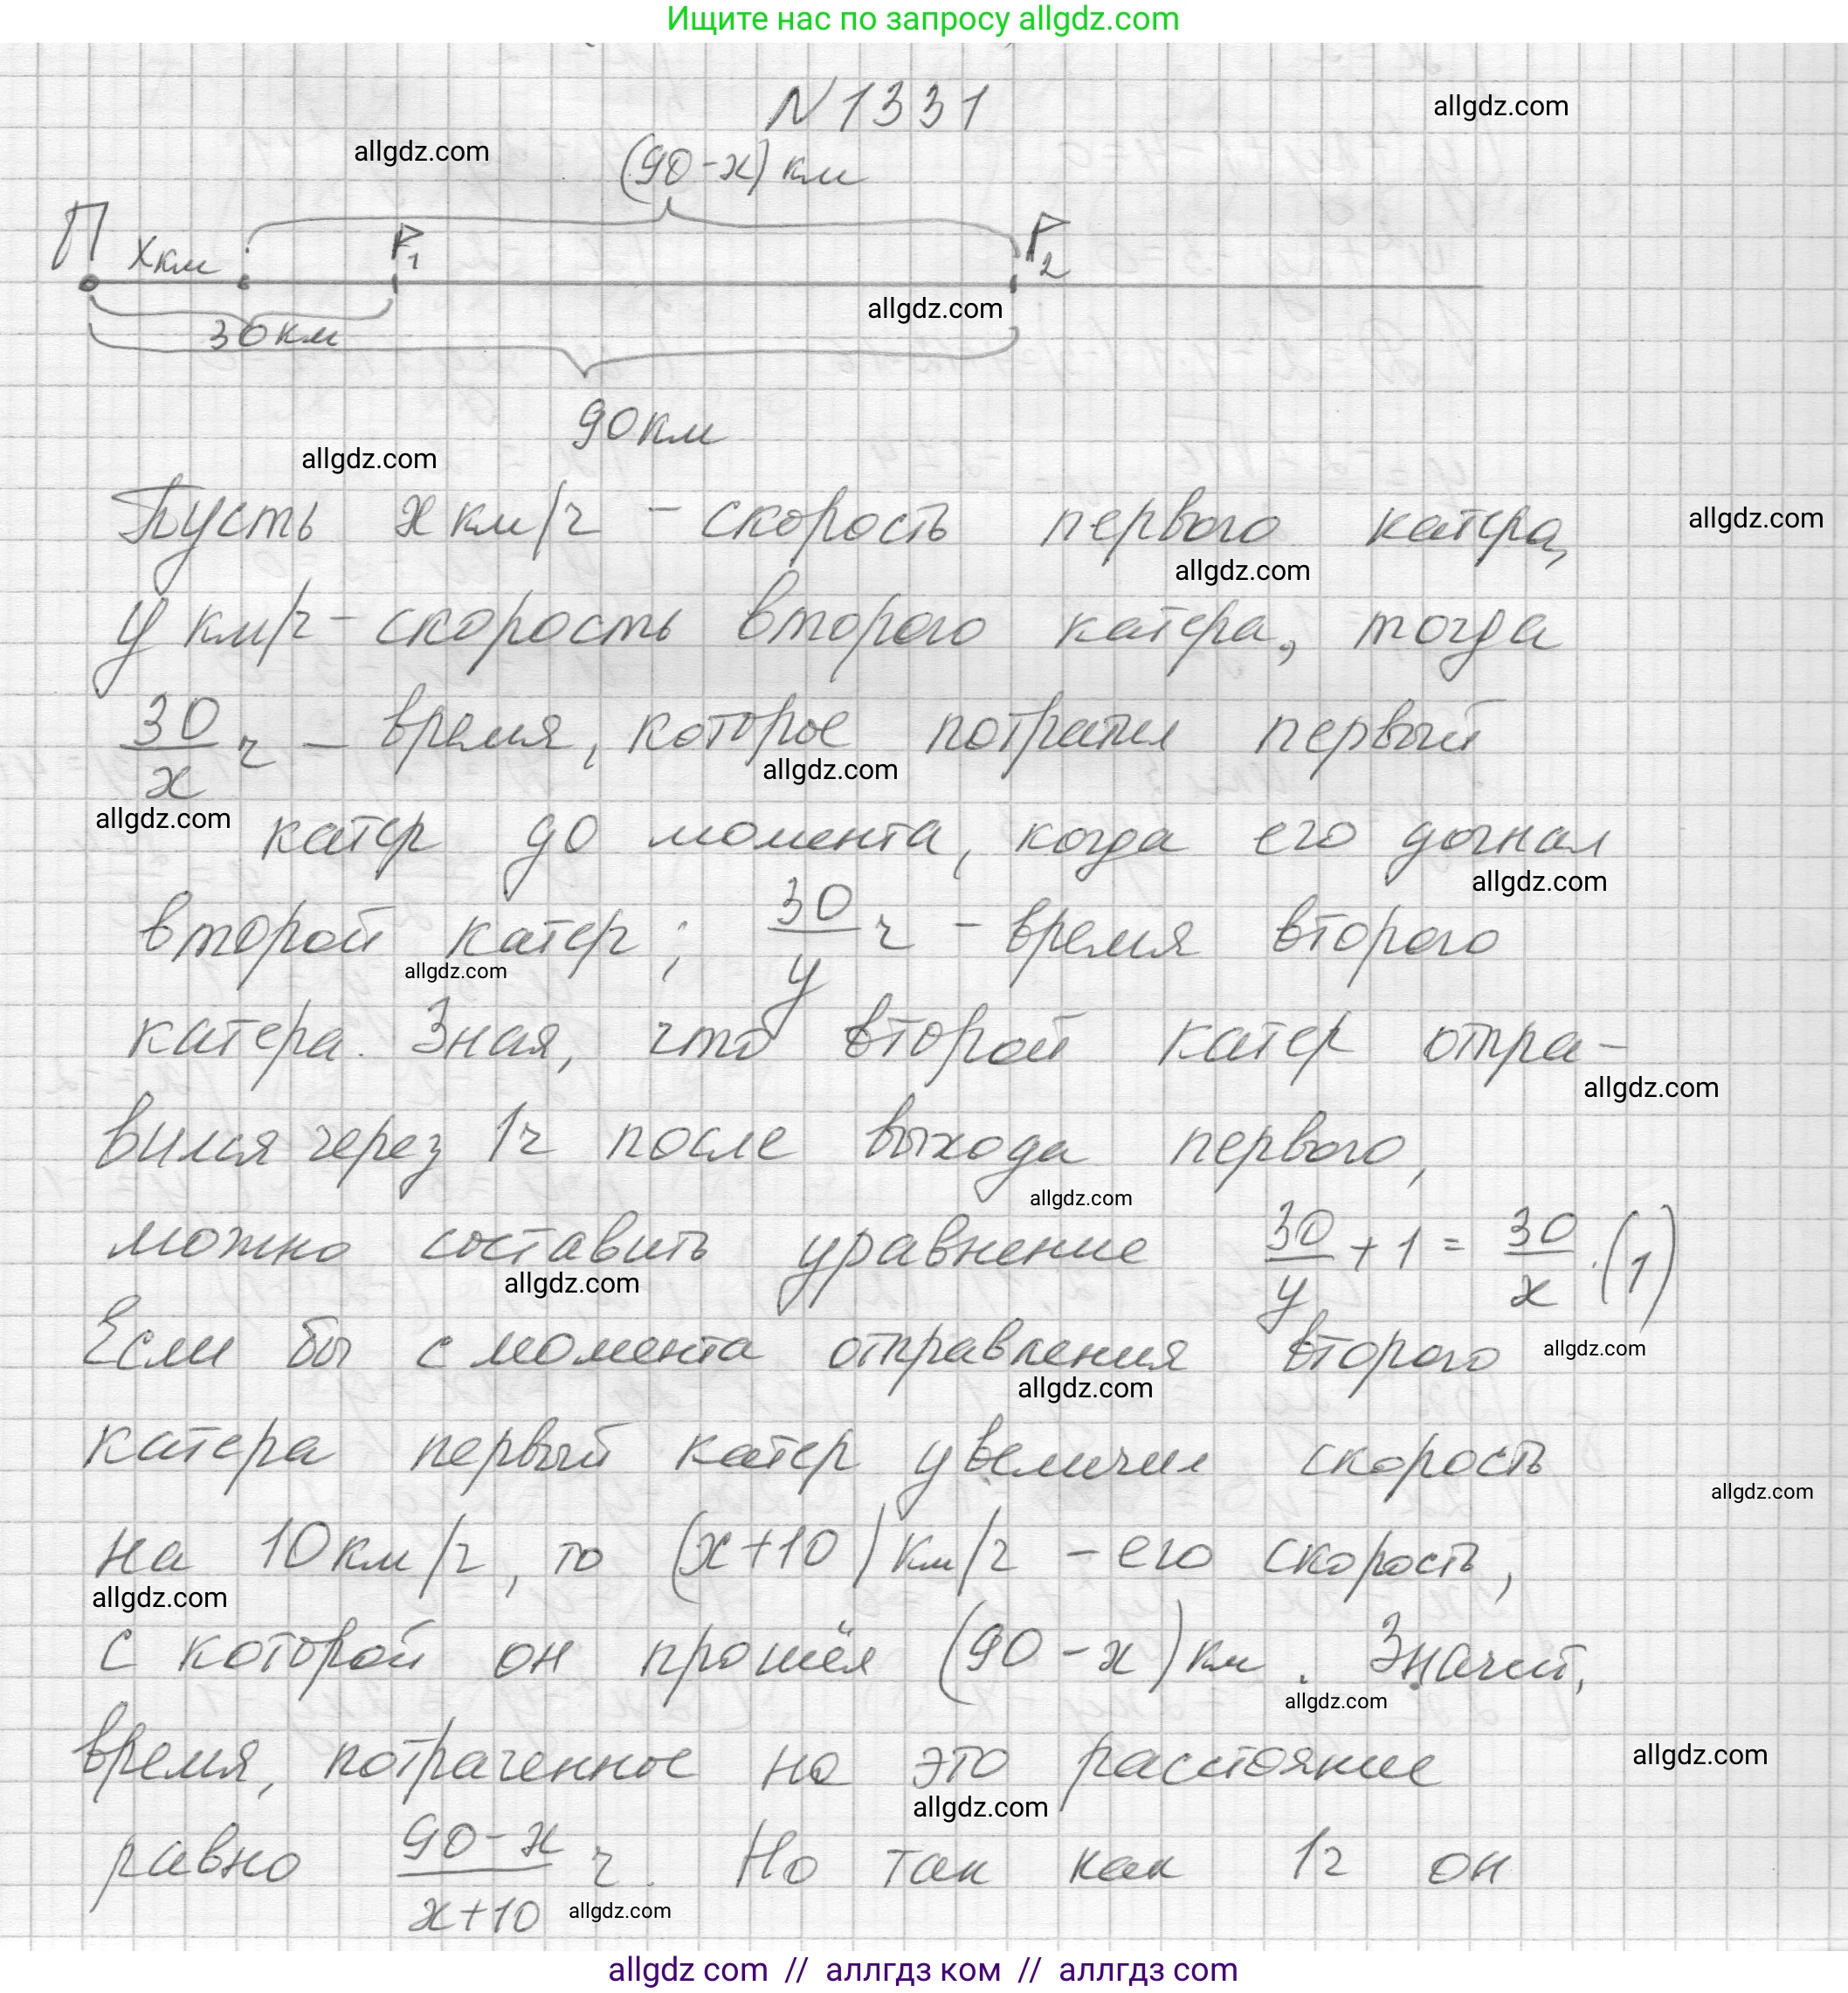 Ищите нас по запросу allgdz.com
N 1331
allgdz.com
allgdz.com
(90-x) км
П x км P1 P2
allgdz.com
30 км
90 км
allgdz.com
Пусть x км/ч - скорость первого катера,
allgdz.com
allgdz.com
y км/ч - скорость второго катера, тогда
30/x ч - время, которое потратил первый
allgdz.com
allgdz.com
катер до момента, когда его догнал
allgdz.com
второй катер; 30/y ч - время второго
allgdz.com
катера. Зная, что второй катер отпра-
allgdz.com
вился через 1ч после выхода первого,
allgdz.com
можно составить уравнение 30/y + 1 = 30/x. (1)
allgdz.com
Если бы с момента отправления второго
allgdz.com
allgdz.com
катера первый катер увеличил скорость
allgdz.com
на 10 км/ч, то (x+10) км/ч - его скорость,
allgdz.com
с которой он прошёл (90-x) км. Значит,
allgdz.com
время, потраченное на это расстояние
allgdz.com
allgdz.com
равно (90-x)/(x+10) ч. Но так как 1ч он
allgdz.com
allgdz com // аллгдз ком // аллгдз com